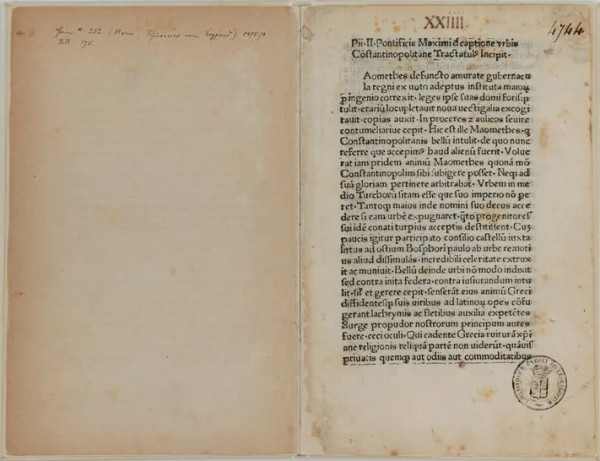 XXIIII
4744
Pii·II·Pontificis Maximi d captione vrbis
Cōstantinopolitane Tractatul9 Incipit·
Aomethes defuncto amurate gubernacu
la regni ex uoto adeptus instituta maioꝝ
ꝓ ingenio correxit· leges ipse suas domi forisqꝫ
tulit· erariū locupletauit noua uectigalia excogi
tauit· copias auxit· In proceres ⁊ aulicos seuire
contumeliariue cepit· Hic est ille Maomethes· q
Constantinopolitanis bellū intulit· de quo nunc
referre que accepim9 haud alienū fuerit· Volue
rat iam pridem animū Maomethes quonā mō
Constantinopolim sibi subigere posset· Neqꝫ ad
suā gloriam pertinere arbitrabat· Vrbem in me
dio Turchoꝝ sitam esse que suo imperio nō pe
ret· Tantoqꝫ maius inde nomini suo decus acce
dere si eam urbē expugnaret· q̄to progenitores
sui idē conati turpius acceptis destitissent· Cuꝫ
paucis igitur participato consilio castellū iuxta
littus ad ostium Bosphori paulo ab urbe remoti
us aliud dissimulās· incredibili celeritate extrux
it ac muniuit· Bellū deinde urbi nō modo indixit
sed contra inita federa· contra iusiurandum intu
lit· sil' et gerere cepit· senserūt eius animū Greci
diffidentesqꝫ suis uiribus ad latinoꝝ opes cōfu
gerant lachrymis ac fletibus auxilia expetētes
Surge propudor nostrorum principum aures
fuere· ceci oculi· Qui cadente Grecia ruiturā xp̄i
ane religionis reliquā partē non uiderūt· quāuis
priuatis quemqꝫ aut odiis aut commoditatibus